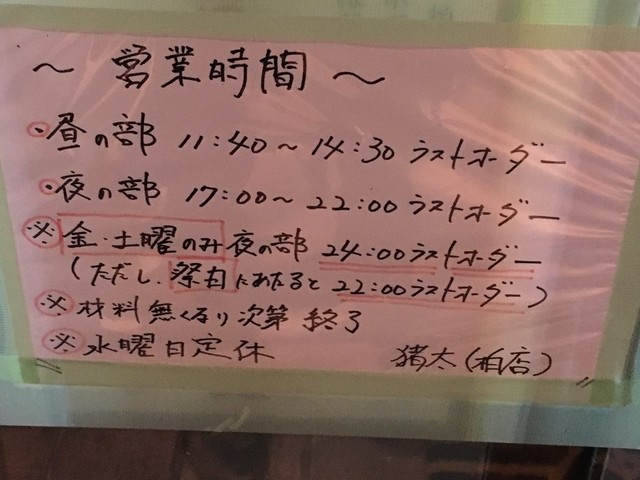 ～ 営業時間 ～
・昼の部 11:40～14:30 ラストオーダー
・夜の部 17:00～22:00 ラストオーダー
※ 金・土曜のみ夜の部 24:00ラストオーダー
(ただし、祭日にあたると 22:00ラストオーダー)
※ 材料無くなり次第 終了
※ 水曜日定休 猪太(柏店)